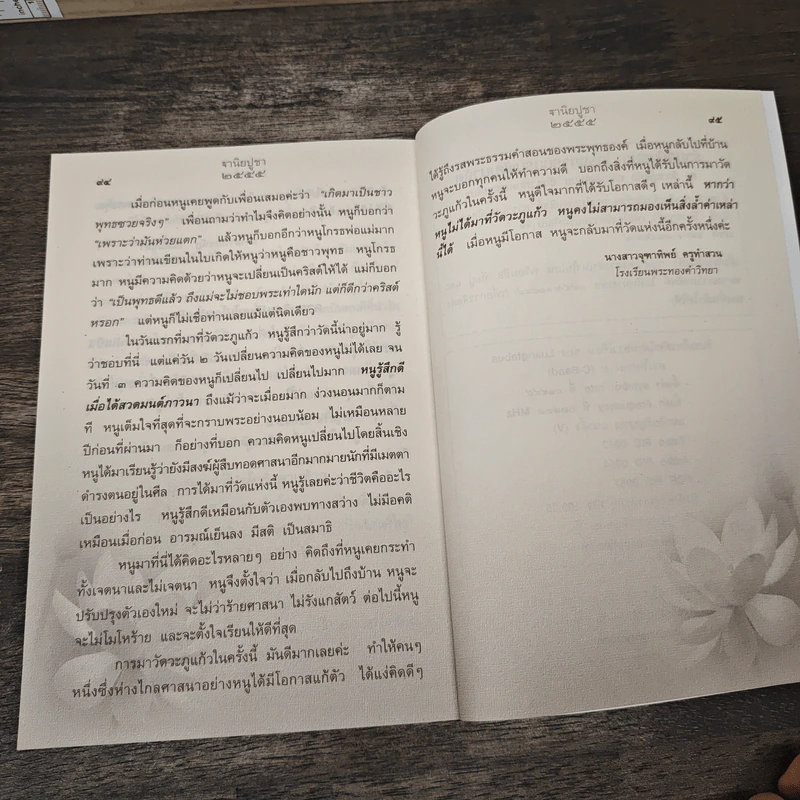 ฐานิยปูชา
๒๕๕๕
๙๔
เมื่อก่อนหนูเคยพูดกับเพื่อนเสมอค่ะว่า “เกิดมาเป็นชาว
พุทธซวยจริงๆ” เพื่อนถามว่าทำไมจึงคิดอย่างนั้น หนูก็บอกว่า
“เพราะว่ามันห่วยแตก” แล้วหนูก็บอกอีกว่าหนูโกรธพ่อแม่มาก
เพราะว่าท่านเขียนในใบเกิดให้หนูว่าหนูคือชาวพุทธ หนูโกรธ
มาก หนูมีความคิดด้วยว่าหนูจะเปลี่ยนเป็นคริสต์ให้ได้ แม่ก็บอก
ว่า “เป็นพุทธดีแล้ว ถึงแม่จะไม่ชอบพระเท่าใดนัก แต่ก็ดีกว่าคริสต์
หรอก” แต่หนูก็ไม่เชื่อท่านเลยแม้แต่นิดเดียว
ในวันแรกที่มาที่วัดวะภูแก้ว หนูรู้สึกว่าวัดนี้น่าอยู่มาก รู้
ว่าชอบที่นี่ แต่แค่วัน ๒ วันเปลี่ยนความคิดของหนูไม่ได้เลย จน
วันที่ ๓ ความคิดของหนูก็เปลี่ยนไป เปลี่ยนไปมาก หนูรู้สึกดี
เมื่อได้สวดมนต์ภาวนา ถึงแม้ว่าจะเมื่อยมาก ง่วงนอนมากก็ตาม
ที หนูเต็มใจที่สุดที่จะกราบพระอย่างนอบน้อม ไม่เหมือนหลาย
ปีก่อนที่ผ่านมา ก็อย่างที่บอก ความคิดหนูเปลี่ยนไปโดยสิ้นเชิง
หนูได้มาเรียนรู้ว่ายังมีสงฆ์ผู้สืบทอดศาสนาอีกมากมายนักที่มีเมตตา
ดำรงตนอยู่ในศีล การได้มาที่วัดแห่งนี้ หนูรู้เลยค่ะว่าชีวิตคืออะไร
เป็นอย่างไร หนูรู้สึกดีเหมือนกับตัวเองพบทางสว่าง ไม่มีอคติ
เหมือนเมื่อก่อน อารมณ์เย็นลง มีสติ เป็นสมาธิ
หนูมาที่นี่ได้คิดอะไรหลายๆ อย่าง คิดถึงที่หนูเคยกระทำ
ทั้งเจตนาและไม่เจตนา หนูจึงตั้งใจว่า เมื่อกลับไปถึงบ้าน หนูจะ
ปรับปรุงตัวเองใหม่ จะไม่ว่าร้ายศาสนา ไม่รังแกสัตว์ ต่อไปนี้หนู
จะไม่โมโหร้าย และจะตั้งใจเรียนให้ดีที่สุด
การมาวัดวะภูแก้วในครั้งนี้ มันดีมากเลยค่ะ ทำให้คนๆ
หนึ่งซึ่งห่างไกลศาสนาอย่างหนูได้มีโอกาสแก้ตัว ได้แง่คิดดีๆ
ฐานิยปูชา
๒๕๕๕
๙๕
ได้รู้ถึงรสพระธรรมคำสอนของพระพุทธองค์ เมื่อหนูกลับไปที่บ้าน
หนูจะบอกทุกคนให้ทำความดี บอกถึงสิ่งที่หนูได้รับในการมาวัด
วะภูแก้วในครั้งนี้ หนูดีใจมากที่ได้รับโอกาสดีๆ เหล่านี้ หากว่า
หนูไม่ได้มาที่วัดวะภูแก้ว หนูคงไม่สามารถมองเห็นสิ่งล้ำค่าเหล่า
นี้ได้ เมื่อหนูมีโอกาส หนูจะกลับมาที่วัดแห่งนี้อีกครั้งหนึ่งค่ะ
นางสาวจุฑาทิพย์ ครูทำสวน
โรงเรียนพระทองคำวิทยา